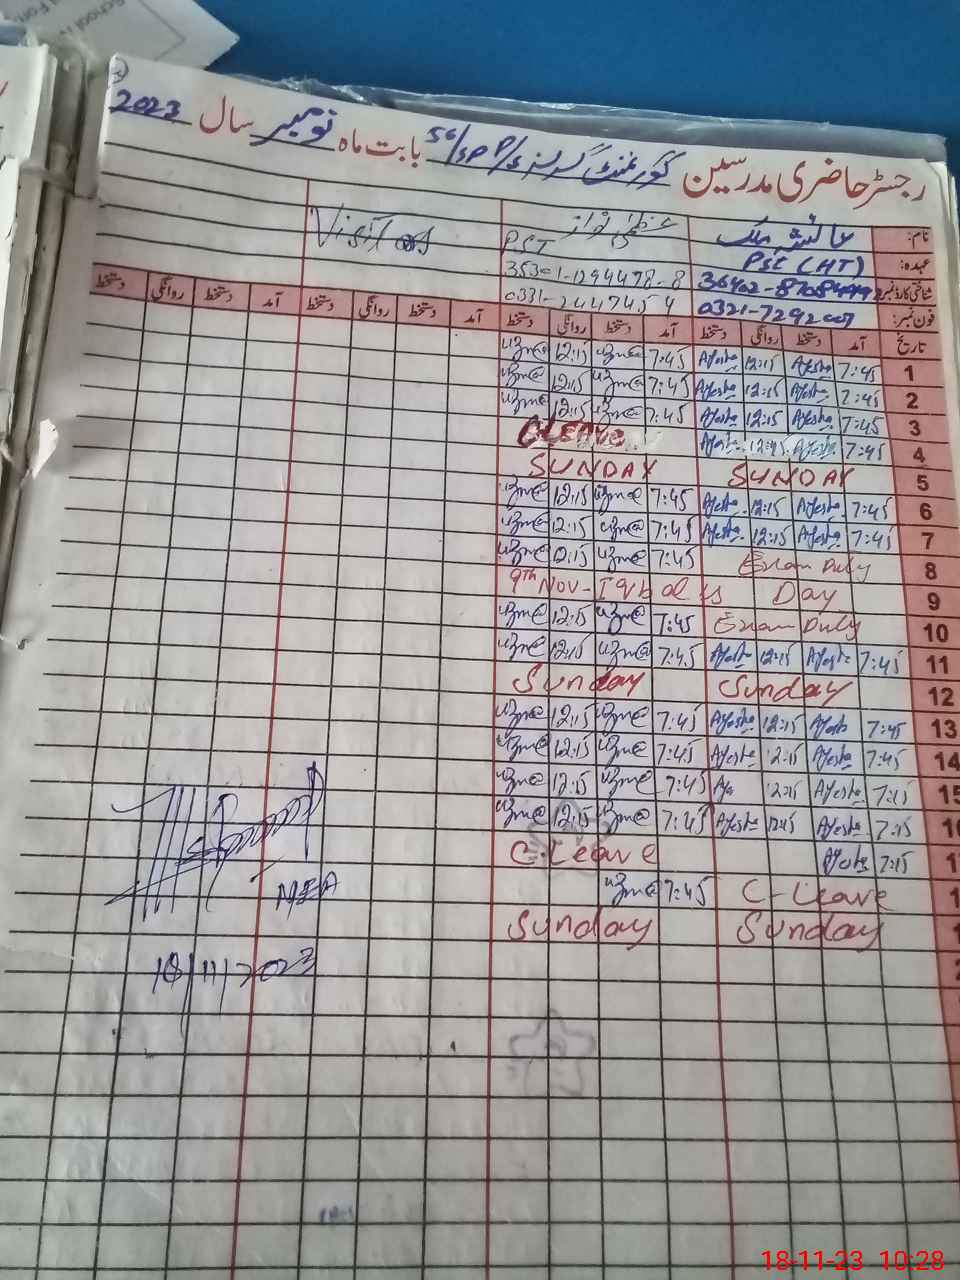 رجسٹر حاضری مدرسین گورنمنٹ گرلز P/S 56/SP بابت ماہ نومبر سال 2023
نام: عائشہ ملک عظمیٰ نواز Visitors
عہدہ: PST (HT) PST
شناختی کارڈ نمبر
فون نمبر: 0321-7292007 0331-2447454
تاریخ آمد دستخط روانگی دستخط آمد دستخط روانگی دستخط آمد دستخط روانگی دستخط آمد دستخط روانگی دستخط
1 7:45 Ayesha 12:15 Ayesha 7:45 uzma 12:15 uzma
2 7:45 Ayesha 12:15 Ayesha 7:45 uzma 12:15 uzma
3 7:45 Ayesha 12:15 Ayesha 7:45 uzma 12:15 uzma
4 7:45 Ayesha 12:15 Ayesha CLEAVE
5 SUNDAY SUNDAY
6 7:45 Ayesha 12:15 Ayesha 7:45 uzma 12:15 uzma
7 7:45 Ayesha 12:15 Ayesha 7:45 uzma 12:15 uzma
8 Exam Duty 7:45 uzma 12:15 uzma
9 9th Nov - Iqbal's Day
10 Exam Duty 7:45 uzma 12:15 uzma
11 7:45 Ayesha 12:15 Ayesha 7:45 uzma 12:15 uzma
12 Sunday Sunday
13 7:45 Ayesha 12:15 Ayesha 7:45 uzma 12:15 uzma
14 7:45 Ayesha 12:15 Ayesha 7:45 uzma 12:15 uzma
15 7:45 Ayesha 12:15 Aya 7:45 uzma 12:15 uzma
7:45 Ayesha 12:15 Ayesha 7:45 uzma 12:15 uzma
7:45 Ayesha C-Leave
C-Leave 7:45 uzma
Sunday Sunday
MEA
18/11/2023
18-11-23 10:28